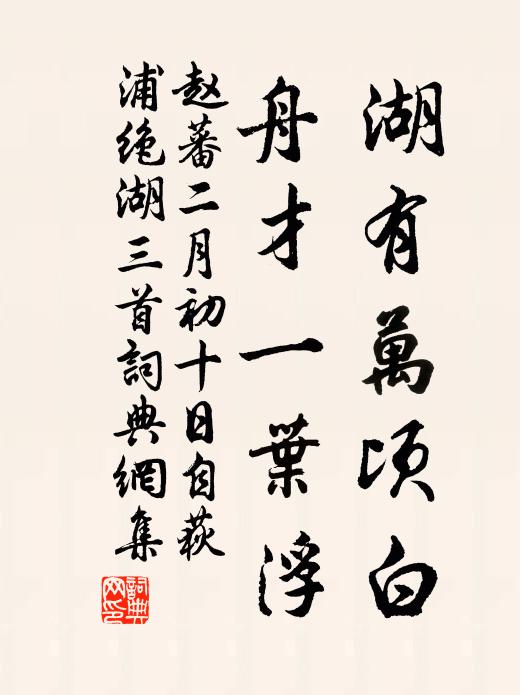 湖有萬頃白
舟才一葉浮
赵蕃二月初十日自荻
浦绝湖三首詞典網集
詞典网印